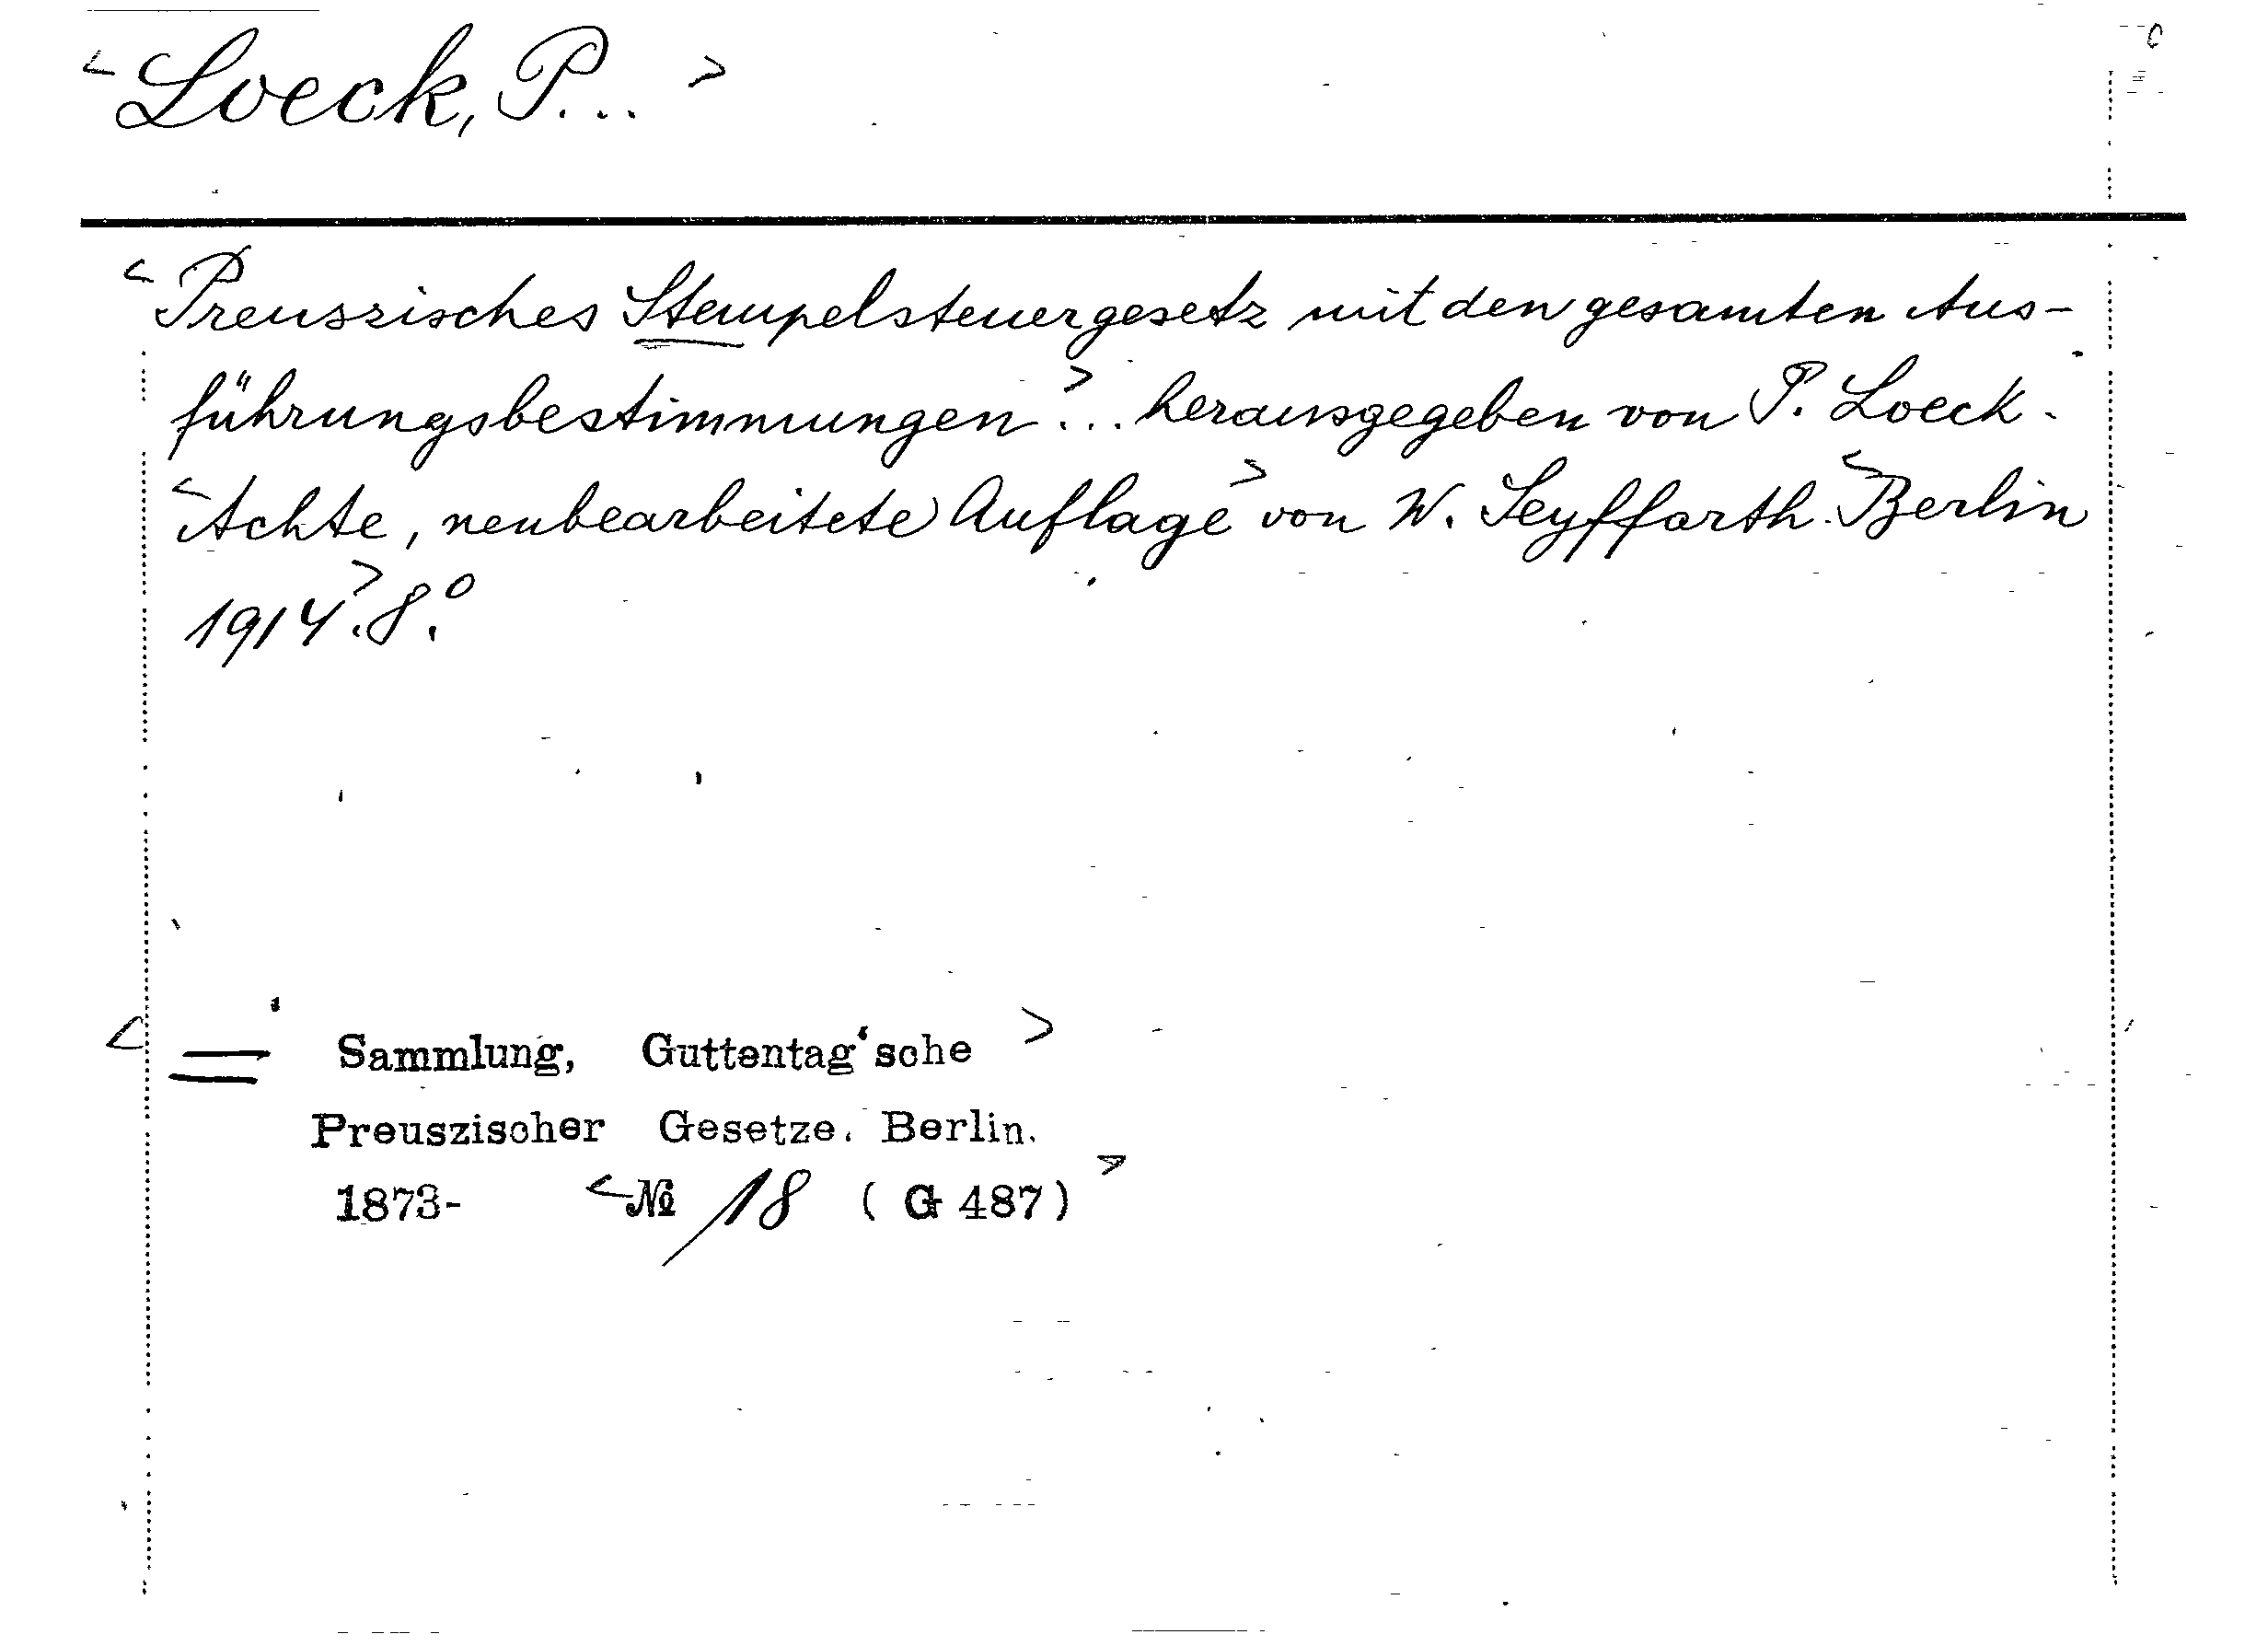 < Loeck, P... >
< Preuszisches Stempelsteuergesetz mit den gesamten Aus-
führungsbestimmungen > ... herausgegeben von P. Loeck.
< Achte, neubearbeitete Auflage > von W. Seyffarth. < Berlin
1914 >. 8º.
< = Sammlung, Guttentag'sche >
Preuszischer Gesetze. Berlin.
1873- < № 18 (G 487) >